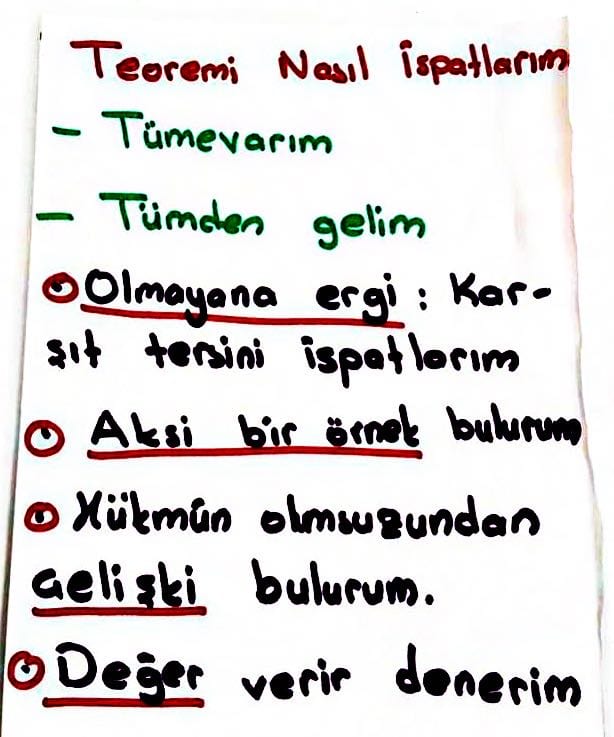 Teoremi Nasıl İspatlarım
- Tümevarım
- Tümden gelim
Olmayana ergi : Kar-
şıt tersini ispatlarım
Aksi bir örnek bulurum
Hükmün olmsuzundan
Çelişki bulurum.
Değer verir denerim